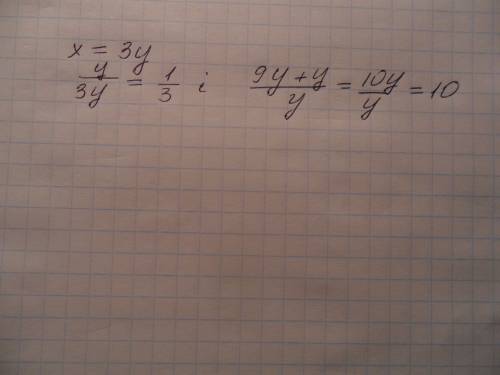 x = 3y
y/3y = 1/3 і (9y + y)/y = 10y/y = 10